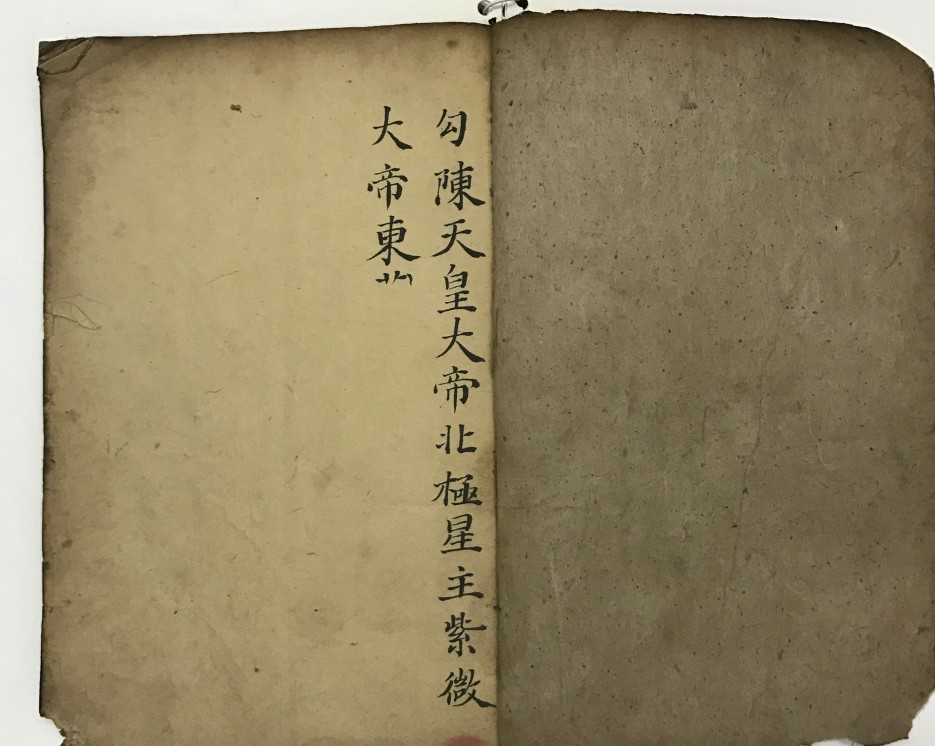 勾陳天皇大帝北極星主紫微
大帝東